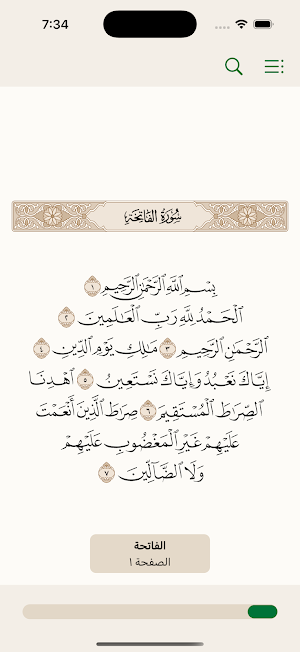 7:34
سُورَةُ الفَاتِحَةِ
بِسْمِ ٱللَّهِ ٱلرَّحْمَٰنِ ٱلرَّحِيمِ ١
ٱلْحَمْدُ لِلَّهِ رَبِّ ٱلْعَٰلَمِينَ ٢
ٱلرَّحْمَٰنِ ٱلرَّحِيمِ ٣ مَٰلِكِ يَوْمِ ٱلدِّينِ ٤
إِيَّاكَ نَعْبُدُ وَإِيَّاكَ نَسْتَعِينُ ٥ ٱهْدِنَا
ٱلصِّرَٰطَ ٱلْمُسْتَقِيمَ ٦ صِرَٰطَ ٱلَّذِينَ أَنْعَمْتَ
عَلَيْهِمْ غَيْرِ ٱلْمَغْضُوبِ عَلَيْهِمْ
وَلَا ٱلضَّآلِّينَ ٧
الفاتحة
الصفحة ١